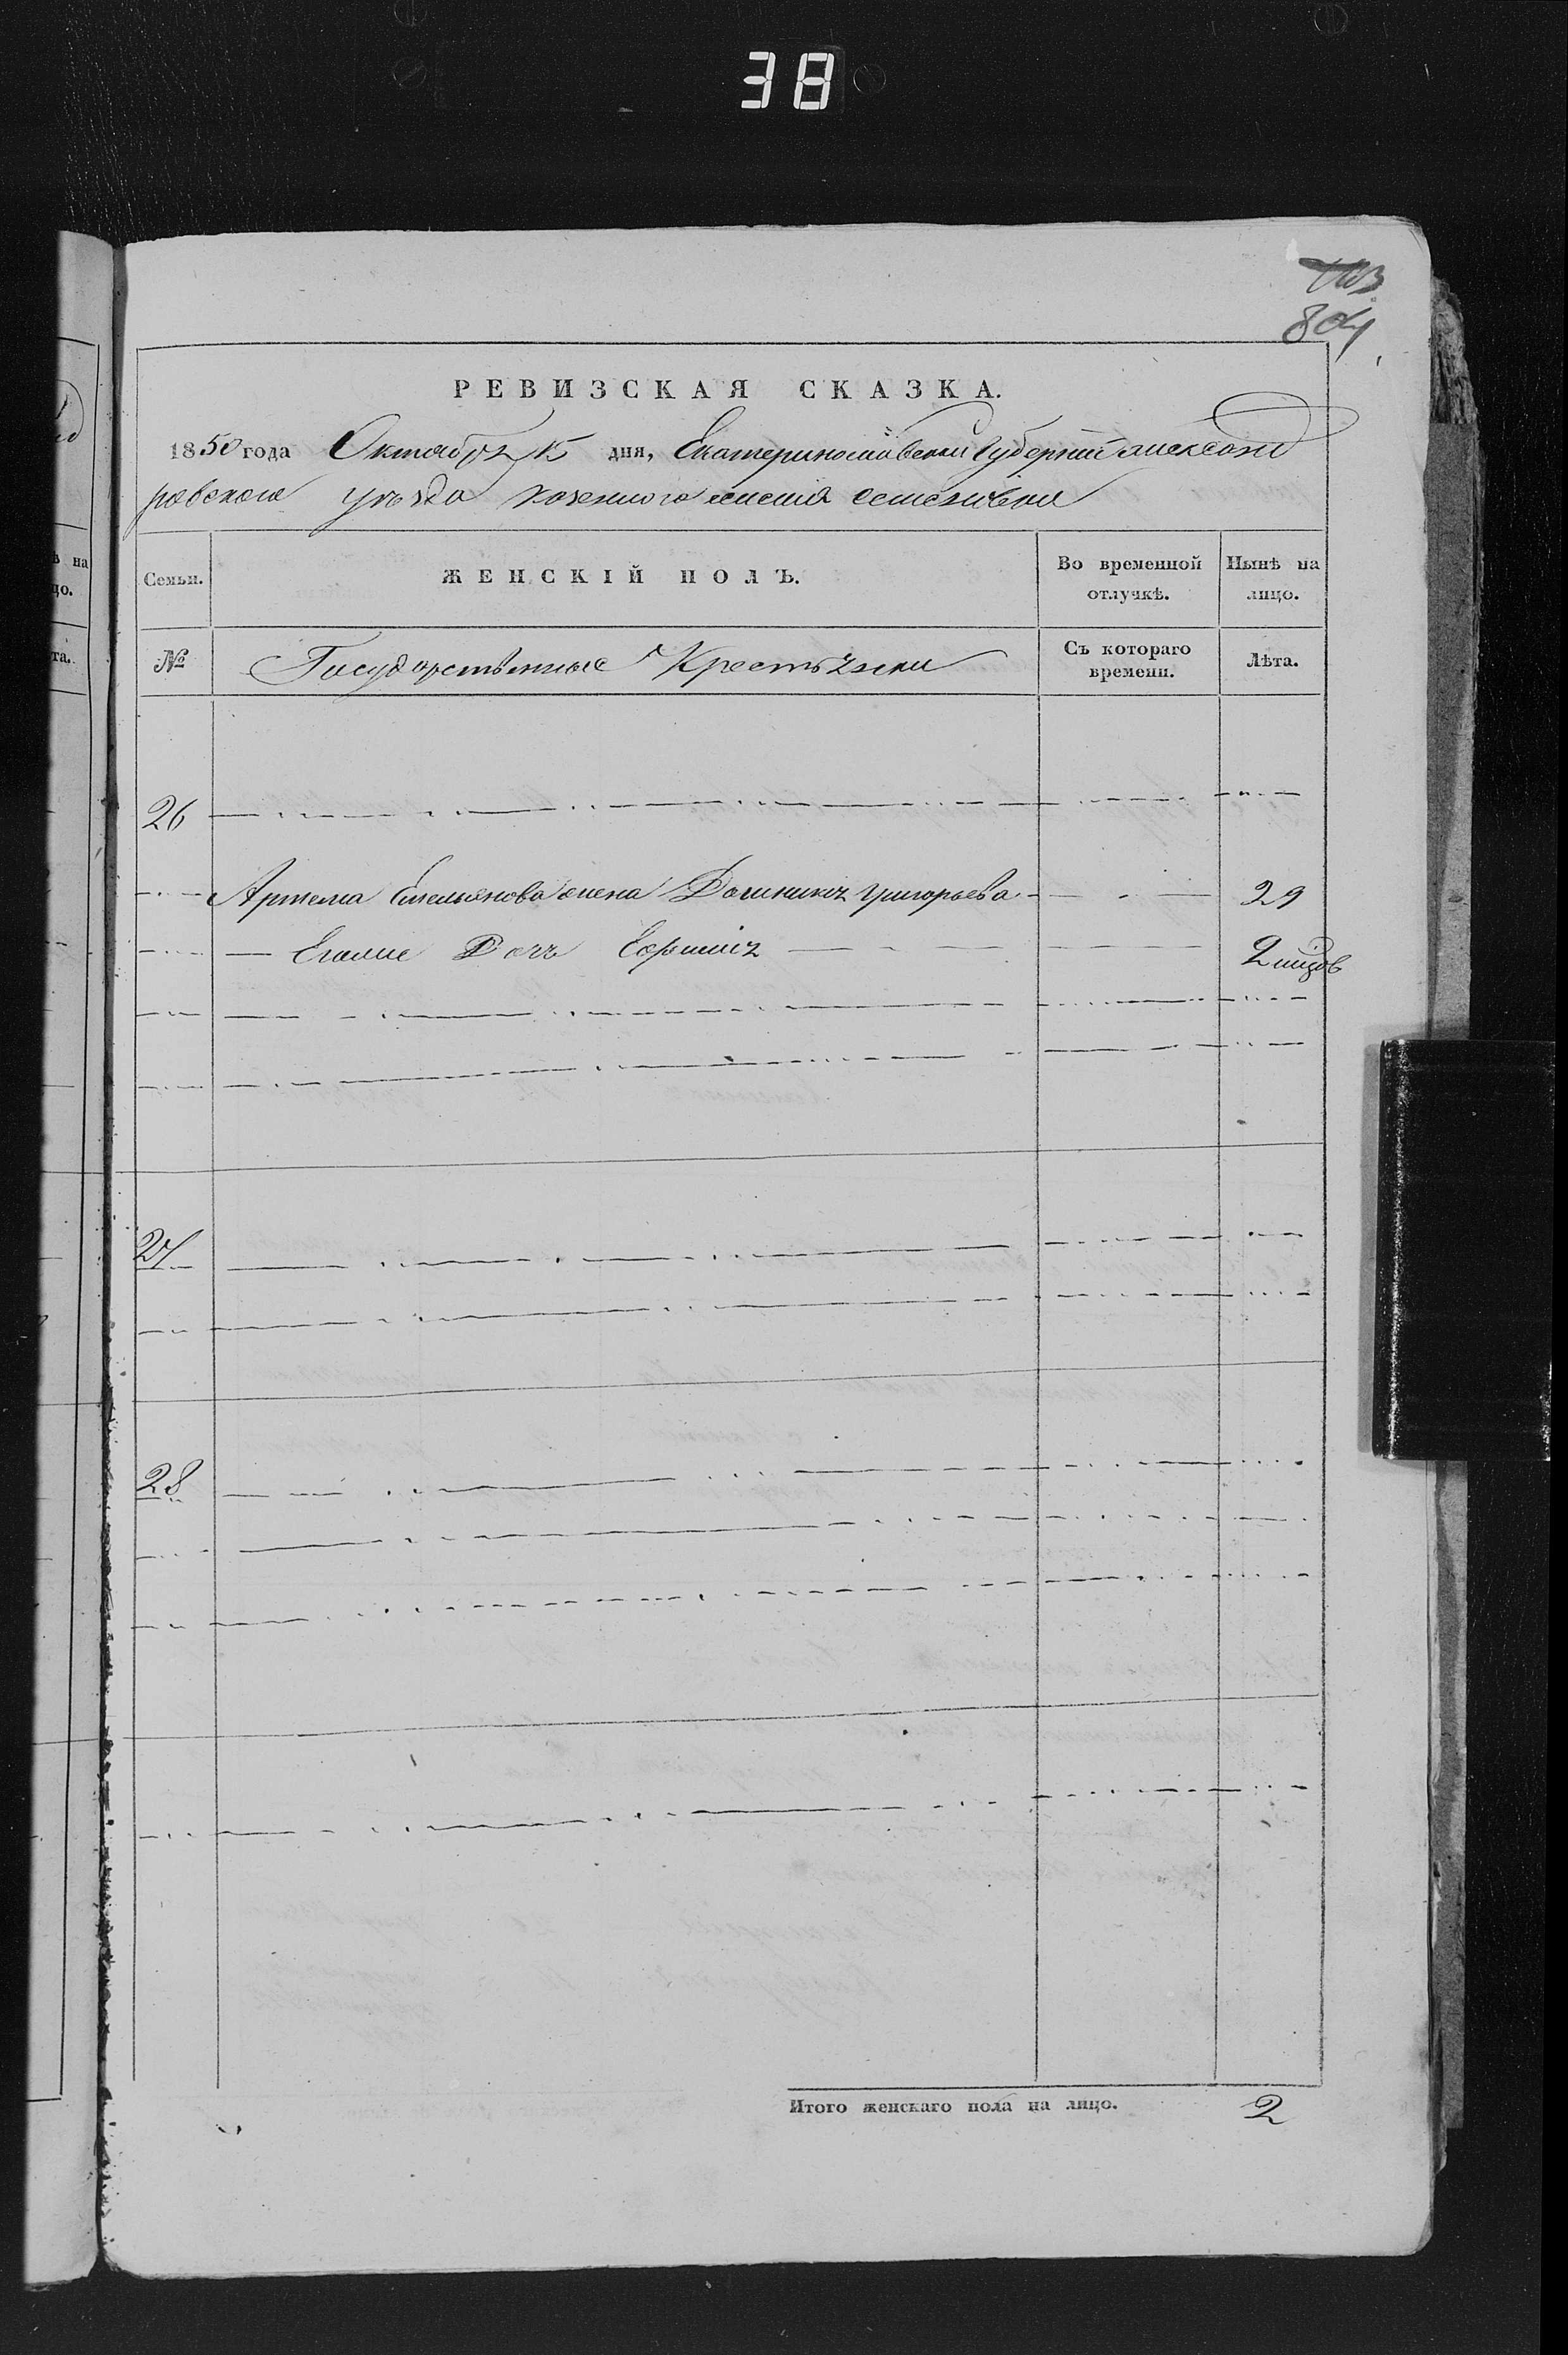 38
804
РЕВИЗСКАЯ СКАЗКА.
1850 года Октября 15 дня, Екатеринославской Губернии Александ
ровского уезда казенного имения
Семьи. ЖЕНСКІЙ ПОЛЪ. Во временной отлучкѣ. Нынѣ на лицо.
№ Государственные Крестьянки Съ котораго времени. Лѣта.
26
Артема Емельянова жена Домникия Григорьева 29
Егоже Дочь Ефимия 2 мцов
27
28
Итого женскаго пола на лицо. 2